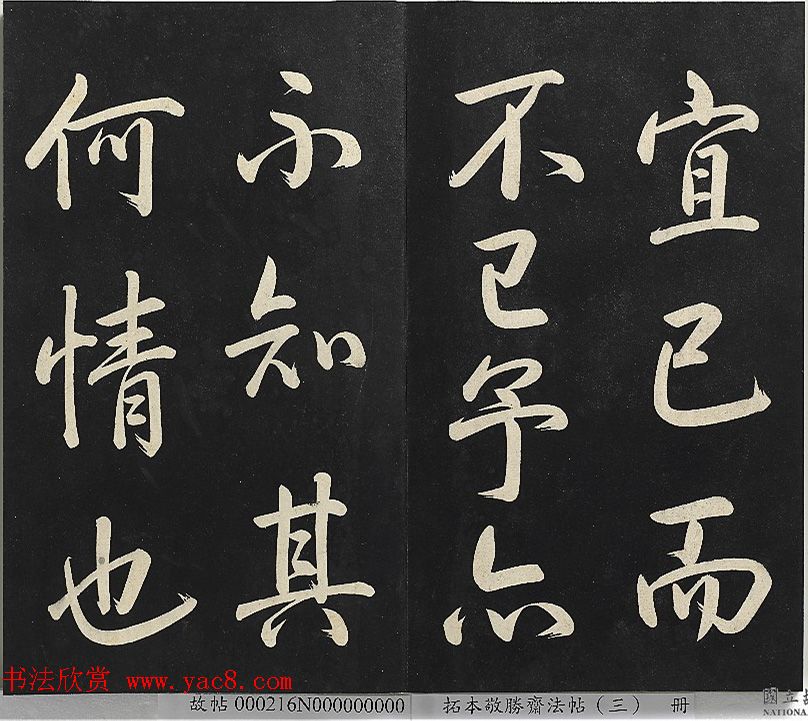 宜已而
不已予亦
不知其
何情也
书法欣赏 www.yac8.com
故帖 000216N000000000
拓本敬勝齋法帖(三) 册
國立
NATIONA